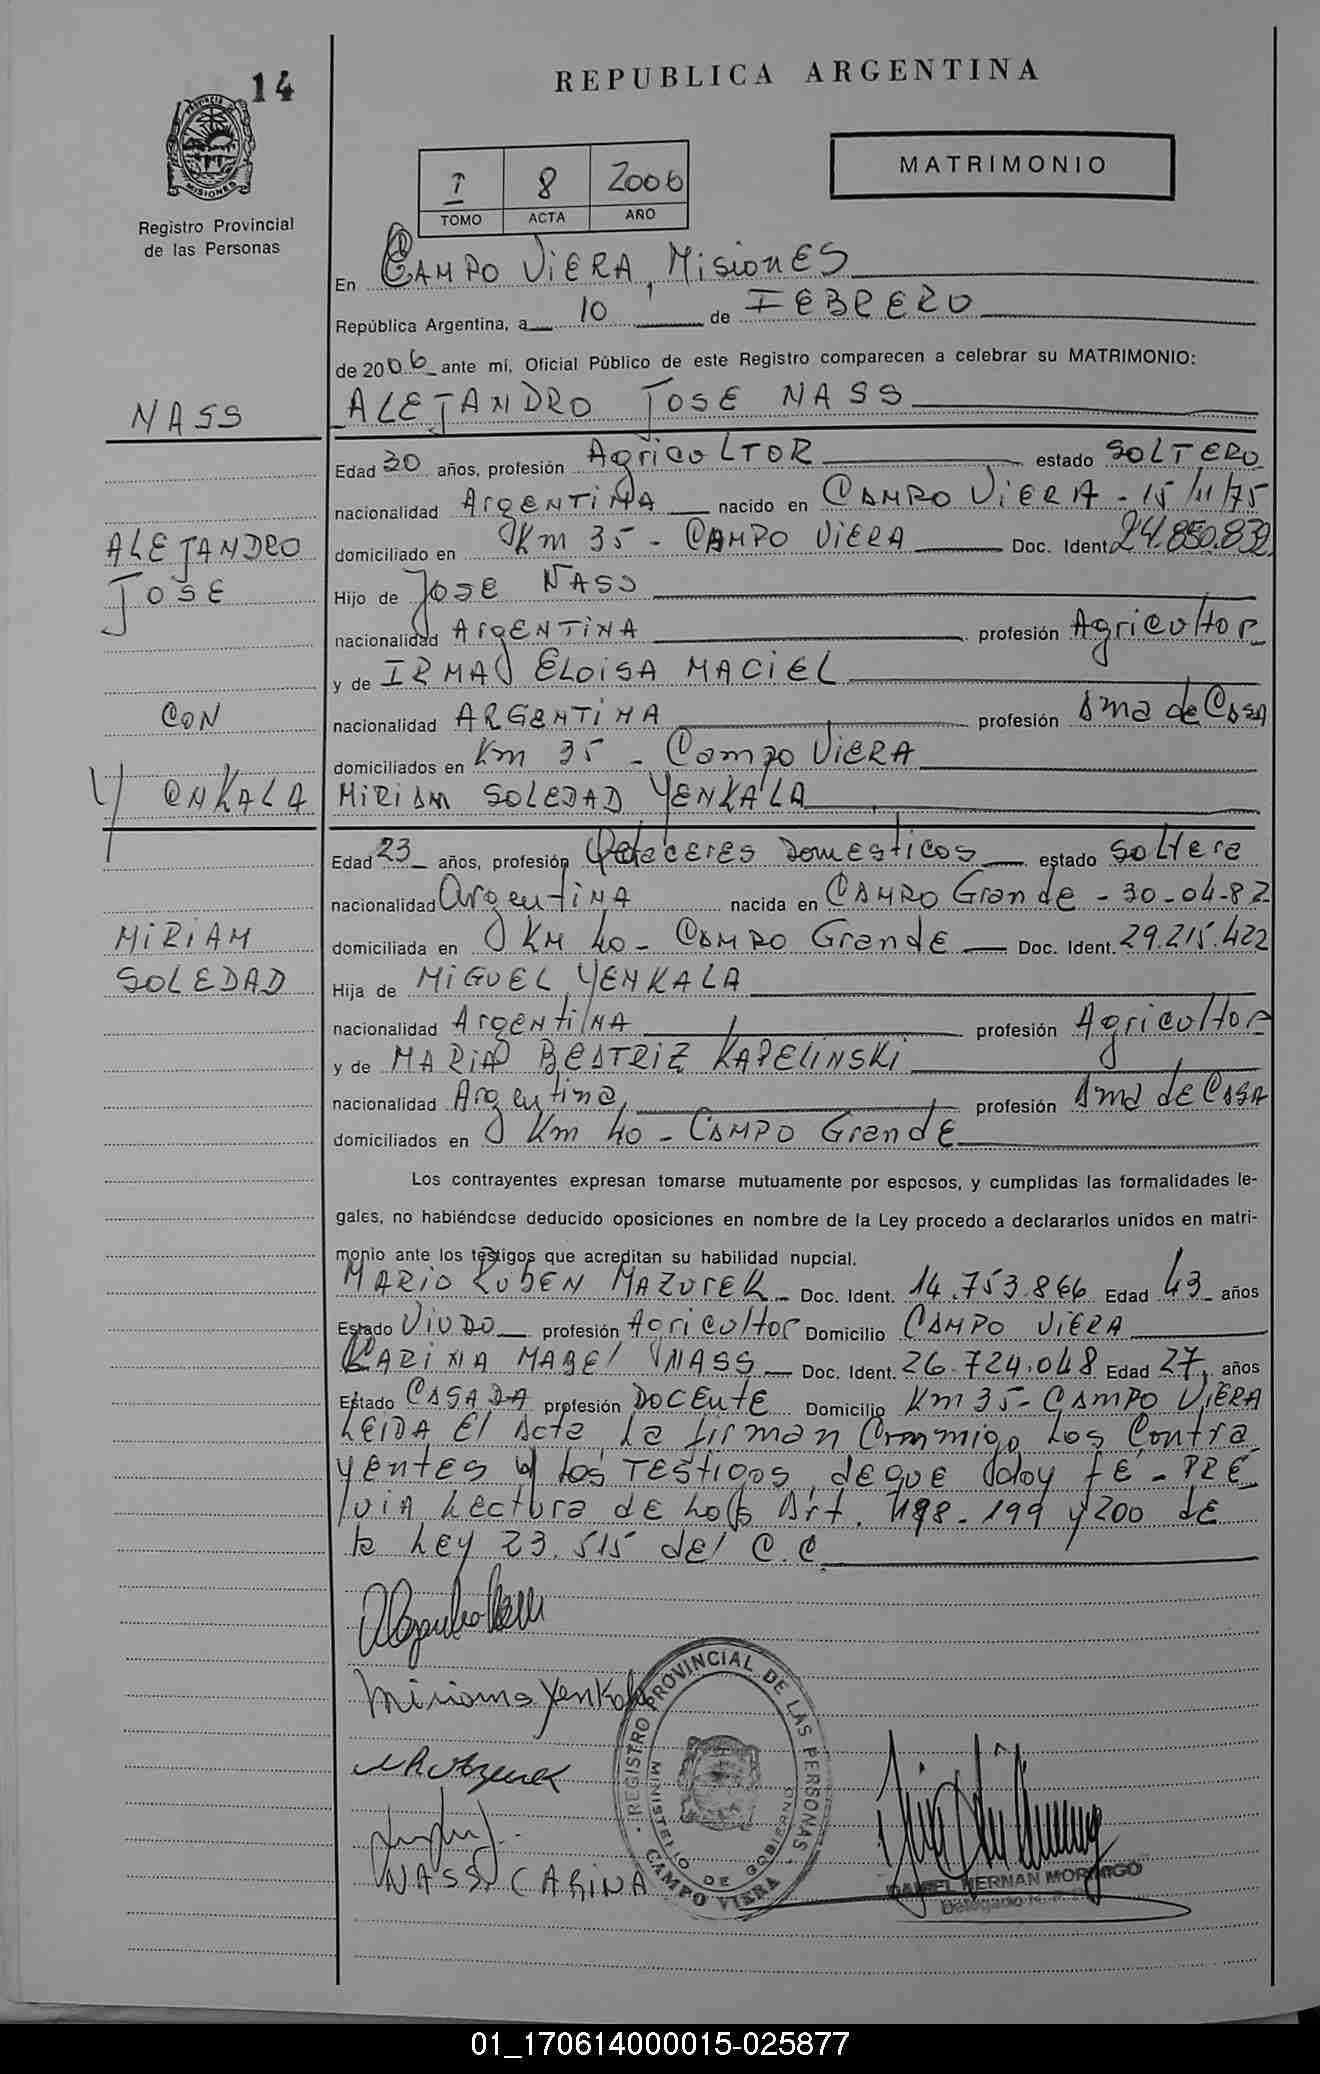 14
REPUBLICA ARGENTINA
MATRIMONIO
I 8 2006
TOMO ACTA AÑO
PROVINCIA DE MISIONES
Registro Provincial
de las Personas
En CAMPO VIERA, MISIONES
República Argentina, a 10 de FEBRERO
de 2006 ante mí, Oficial Público de este Registro comparecen a celebrar su MATRIMONIO:
NASS
ALEJANDRO JOSE NASS
Edad 30 años, profesión AgricuLTOR estado SOLTERO
nacionalidad ArgENTINA nacido en CAMPO VIERA - 15/11/75
ALEJANDRO
domiciliado en Km 35 - CAMPO VIERA Doc. Ident. 24.850.832
JOSE
Hijo de JOSE NASS
nacionalidad ArgENTINA profesión Agricultor
y de IRMA ELOISA MACIEL
CON
nacionalidad ARGENTINA profesión Ama de CASA
domiciliados en Km 35 - Campo VIERA
YENKALA
MIRIAM SOLEDAD YENKALA
Edad 23 años, profesión Quehaceres Domesticos estado soltera
nacionalidad ArgentiNA nacida en CAMPO Grande - 30-04-82
MIRIAM
domiciliada en KM 40 - CAMPO Grande Doc. Ident. 29.215.422
SOLEDAD
Hija de MIGUEL YENKALA
nacionalidad ArgENtiNA profesión Agricultor
y de MARIA BEATRIZ KAPELINSKI
nacionalidad Argentina profesión Ama de CASA
domiciliados en Km 40 - CAMPO Grande
Los contrayentes expresan tomarse mutuamente por esposos, y cumplidas las formalidades le-
gales, no habiéndose deducido oposiciones en nombre de la Ley procedo a declararlos unidos en matri-
monio ante los testigos que acreditan su habilidad nupcial.
MARIO RUBEN MAZUREK Doc. Ident. 14.753.866 Edad 43 años
Estado VIUDO profesión Agricultor Domicilio CAMPO VIERA
CARINA MABEL NASS Doc. Ident. 26.724.048 Edad 27 años
Estado CASADA profesión DOCENTE Domicilio Km 35 - CAMPO VIERA
LEIDA El Acta, La firman Conmigo, Los Contra
yentes y los TESTIGOS, de que doy FE - PRE
VIA Lectura de Los Art. 198 - 199 y 200 de
la Ley 23.515 del C.C
Miriam S Yenkala
NASS CARINA
REGISTRO PROVINCIAL DE LAS PERSONAS
MINISTERIO DE GOBIERNO
CAMPO VIERA
DANIEL HERNAN MORINIGO
Delegado
01_170614000015-025877